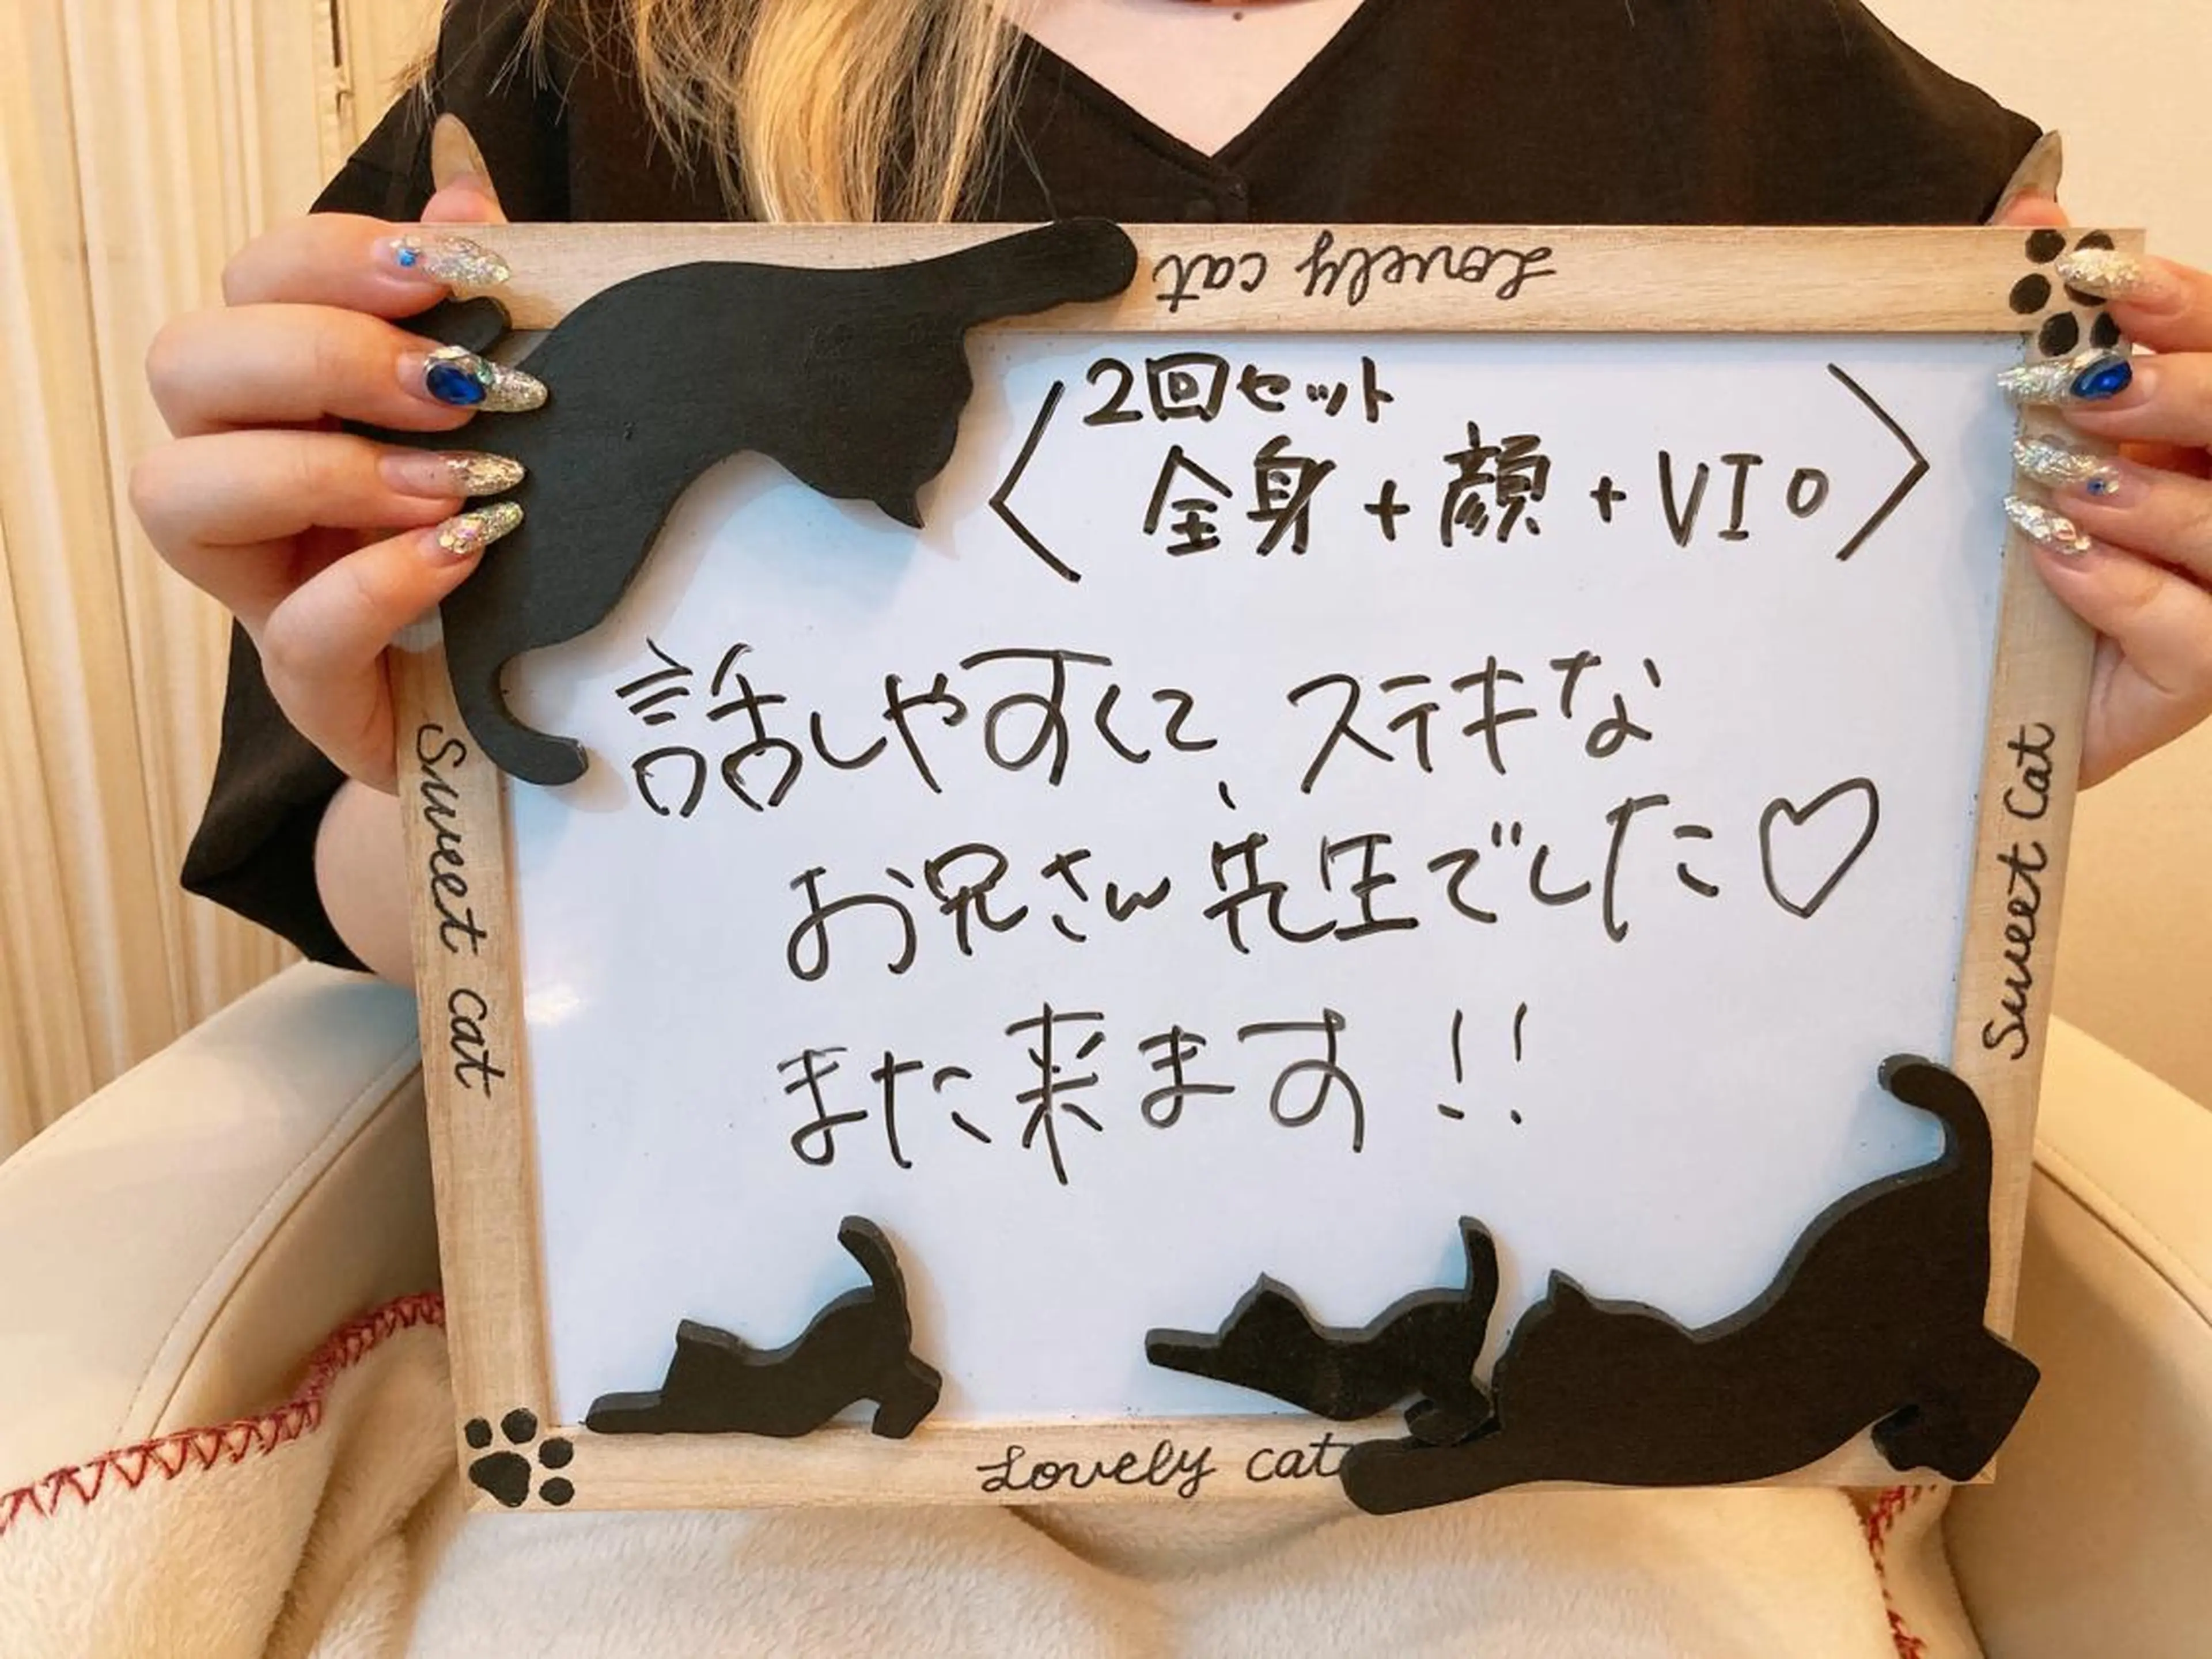 Lovely cat
2回セット
〈 全身+顔+VIO 〉
話しやすくて、ステキな
お兄さん先生でした♡
また来ます!!
Sweet cat
Sweet Cat
Lovely cat